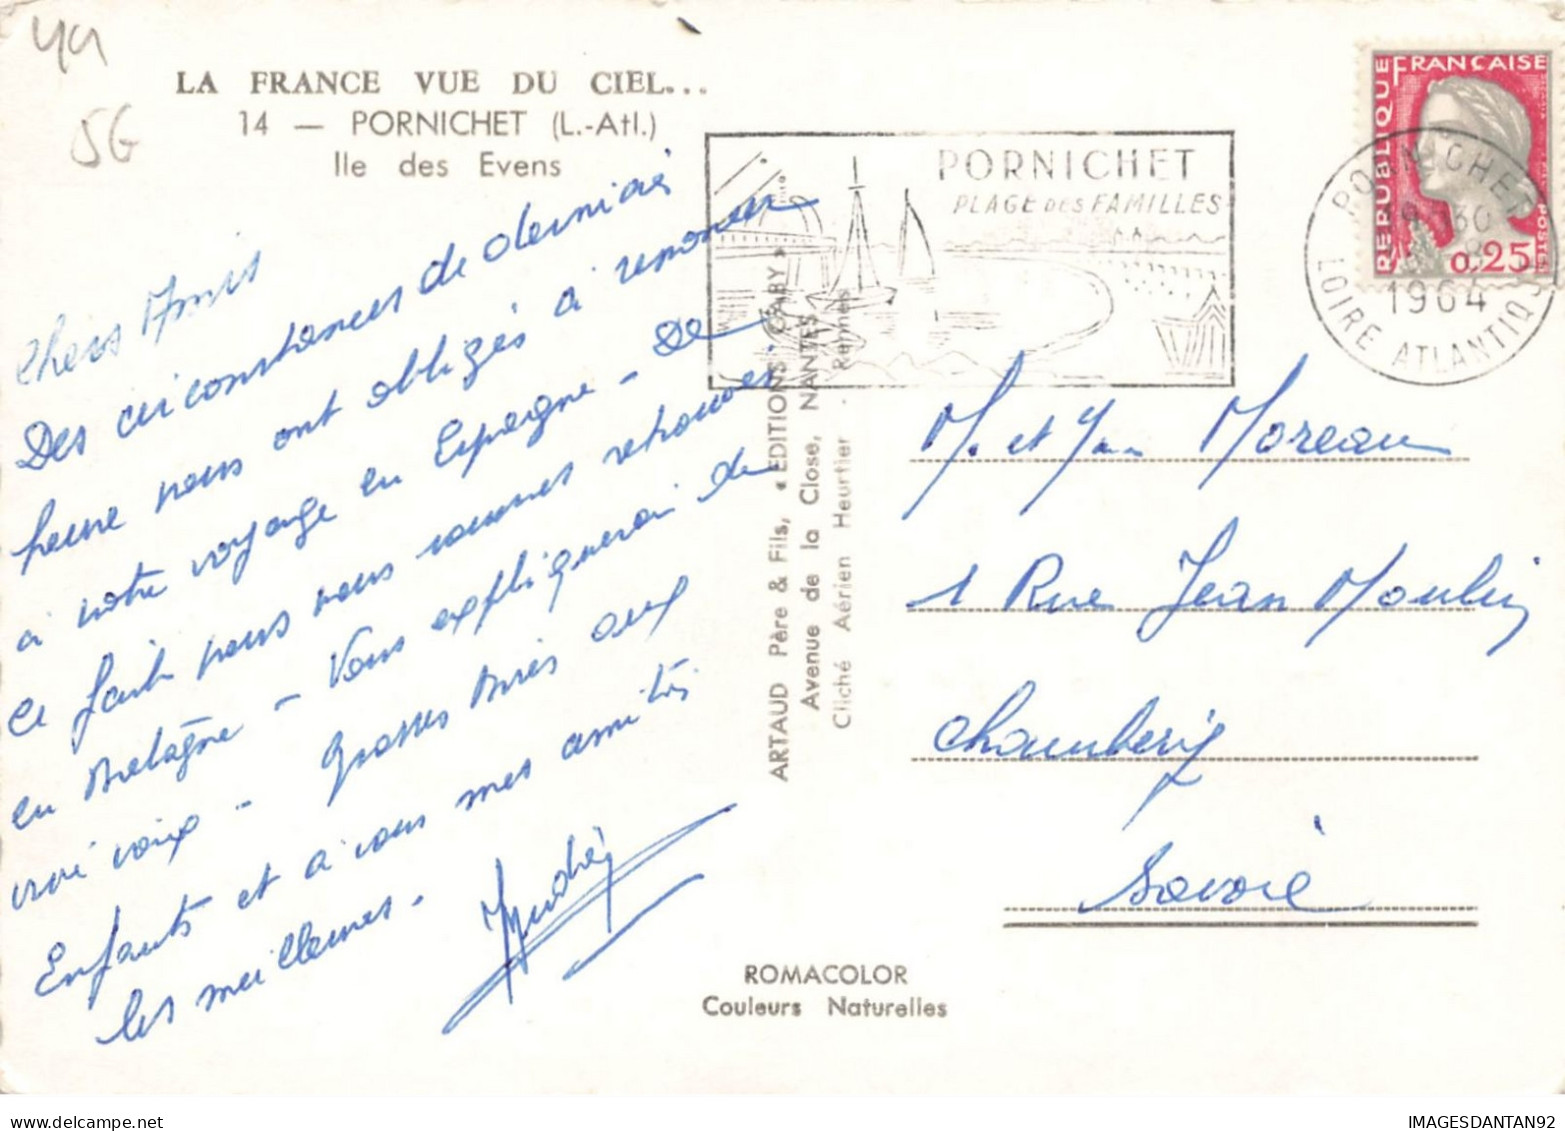 44
56
LA FRANCE VUE DU CIEL...
14 — PORNICHET (L.-Atl.)
Ile des Evens
Chers Amis
Des circonstances de dernière
heure nous ont obligés à renoncer
à notre voyage en Espagne - De
ce fait nous nous sommes retrouvés
en Bretagne - Vous expliquerai de
vive voix - Grosses bises aux
Enfants et à vous mes amitiés
les meilleures.
Andrée
ARTAUD Père & Fils, « EDITIONS GABY »
Avenue de la Close, NANTES
Cliché Aérien Heurtier - Rennes
PORNICHET
PLAGE DES FAMILLES
REPUBLIQUE FRANÇAISE
POSTES
0,25
PORNICHET
1964
LOIRE ATLANTIQUE
M. et Mme Moreau
1 Rue Jean Moulin
Chambéry
Savoie
ROMACOLOR
Couleurs Naturelles
IMAGESDANTAN92